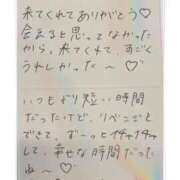 来てくれてありがとう♡
会えると思ってなかった
から、来てくれて、すごく
うれしかった〜♡
いつもより短い時間
だったけど、リベンジも
できて、ずーっとイチャイチャ
して、幸せな時間だった
ね〜♡